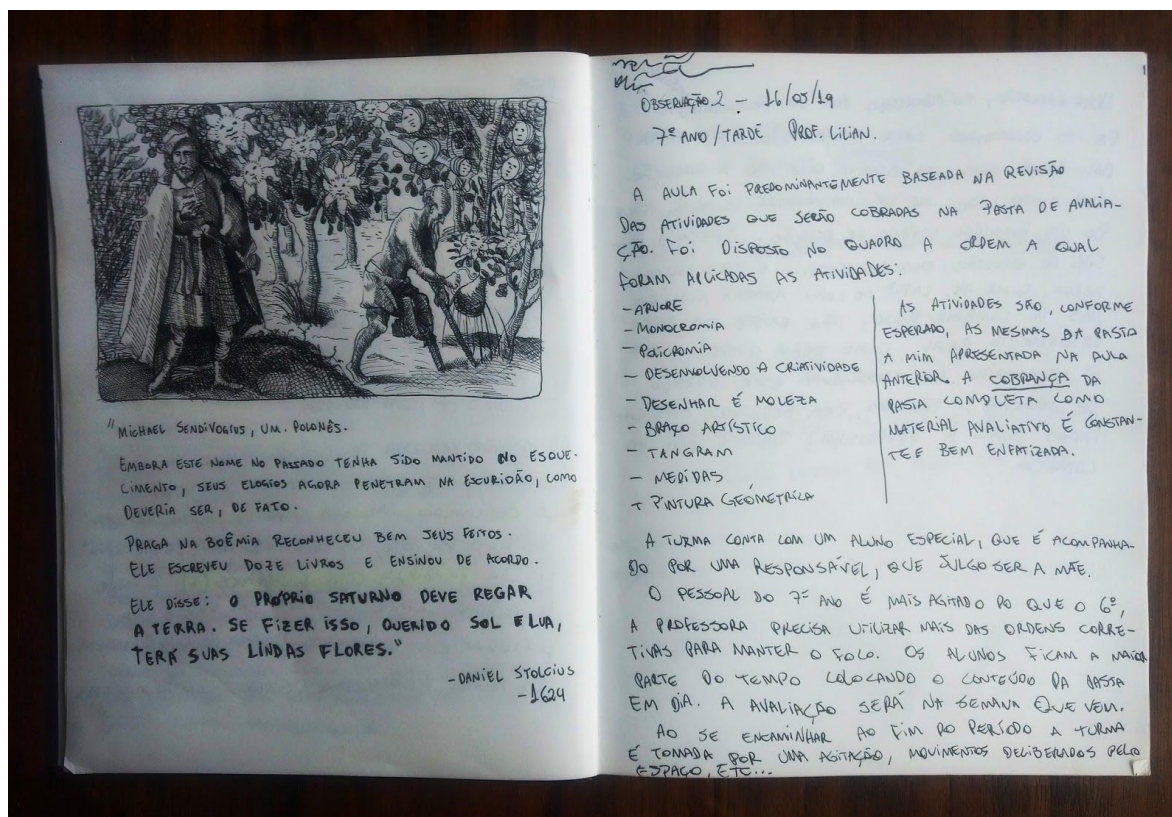 "MICHAEL SENDIVOGIUS, UM POLONÊS.
EMBORA ESTE NOME NO PASSADO TENHA SIDO MANTIDO NO ESQUE-
CIMENTO, SEUS ELOGIOS AGORA PENETRAM NA ESCURIDÃO, COMO
DEVERIA SER, DE FATO.
PRAGA NA BOÊMIA RECONHECEU BEM SEUS FEITOS.
ELE ESCREVEU DOZE LIVROS E ENSINOU DE ACORDO.
ELE DISSE: O PRÓPRIO SATURNO DEVE REGAR
A TERRA. SE FIZER ISSO, QUERIDO SOL E LUA,
TERÁ SUAS LINDAS FLORES."
-DANIEL STOLCIUS
-1624
OBSERVAÇÃO 2 - 16/05/19
7º ANO/TARDE PROF. LILIAN.
A AULA FOI PREDOMINANTEMENTE BASEADA NA REVISÃO
DAS ATIVIDADES QUE SERÃO COBRADAS NA PASTA DE AVALIA-
ÇÃO. FOI DISPOSTO NO QUADRO A ORDEM A QUAL
FORAM APLICADAS AS ATIVIDADES:
- ARVORE
- MONOCROMIA
- POLICROMIA
- DESENVOLVENDO A CRIATIVIDADE
- DESENHAR É MOLEZA
- BRAÇO ARTÍSTICO
- TANGRAM
- MEDIDAS
- PINTURA GEOMÉTRICA
AS ATIVIDADES SÃO, CONFORME
ESPERADO, AS MESMAS DA PASTA
A MIM APRESENTADA NA AULA
ANTERIOR. A COBRANÇA DA
PASTA COMPLETA COMO
MATERIAL AVALIATIVO É CONSTAN-
TE E BEM ENFATIZADA.
A TURMA CONTA COM UM ALUNO ESPECIAL, QUE É ACOMPANHA-
DO POR UMA RESPONSÁVEL, QUE JULGO SER A MÃE.
O PESSOAL DO 7º ANO É MAIS AGITADO DO QUE O 6º,
A PROFESSORA PRECISA UTILIZAR MAIS DAS ORDENS CORRE-
TIVAS PARA MANTER O FOCO. OS ALUNOS FICAM A MAIOR
PARTE DO TEMPO COLOCANDO O CONTEÚDO DA PASTA
EM DIA. A AVALIAÇÃO SERÁ NA SEMANA QUE VEM.
AO SE ENCAMINHAR AO FIM DO PERÍODO A TURMA
É TOMADA POR UMA AGITAÇÃO, MOVIMENTOS DELIBERADOS PELO
ESPAÇO, ETC...